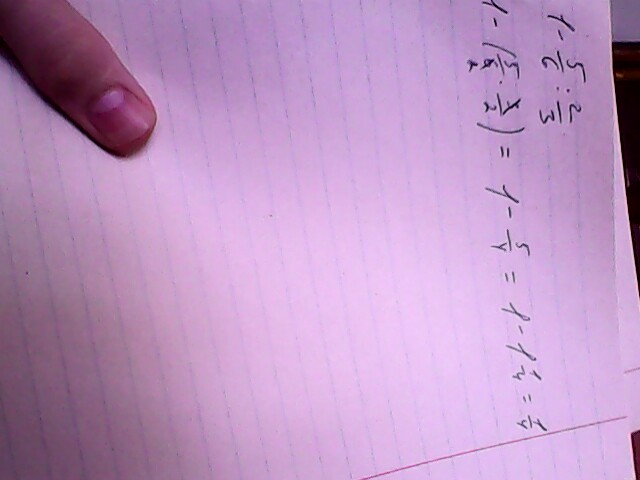 1 - 5/6 : 2/3
1 - (5/6 · 3/2) = 1 - 5/4 = 1 - 1 1/4 = 1/4